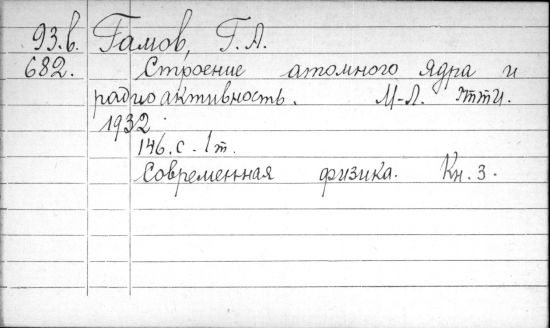 93.в. Гамов, Г.А.
682. Строение атомного ядра и
радиоактивность. М-Л. ГТТИ.
1932.
146.с. 1т.
Современная физика. Кн. 3.